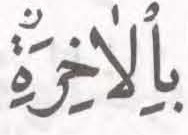 بِاْلاٰخِرَةِ